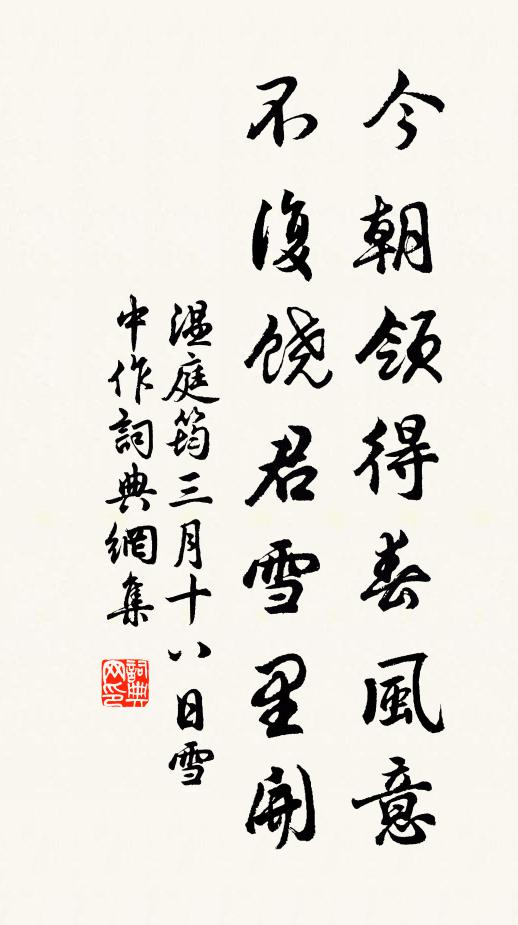 今朝領得春風意
不復饒君雪里開
溫庭筠三月十八日雪
中作詞典網集
詞典
网印